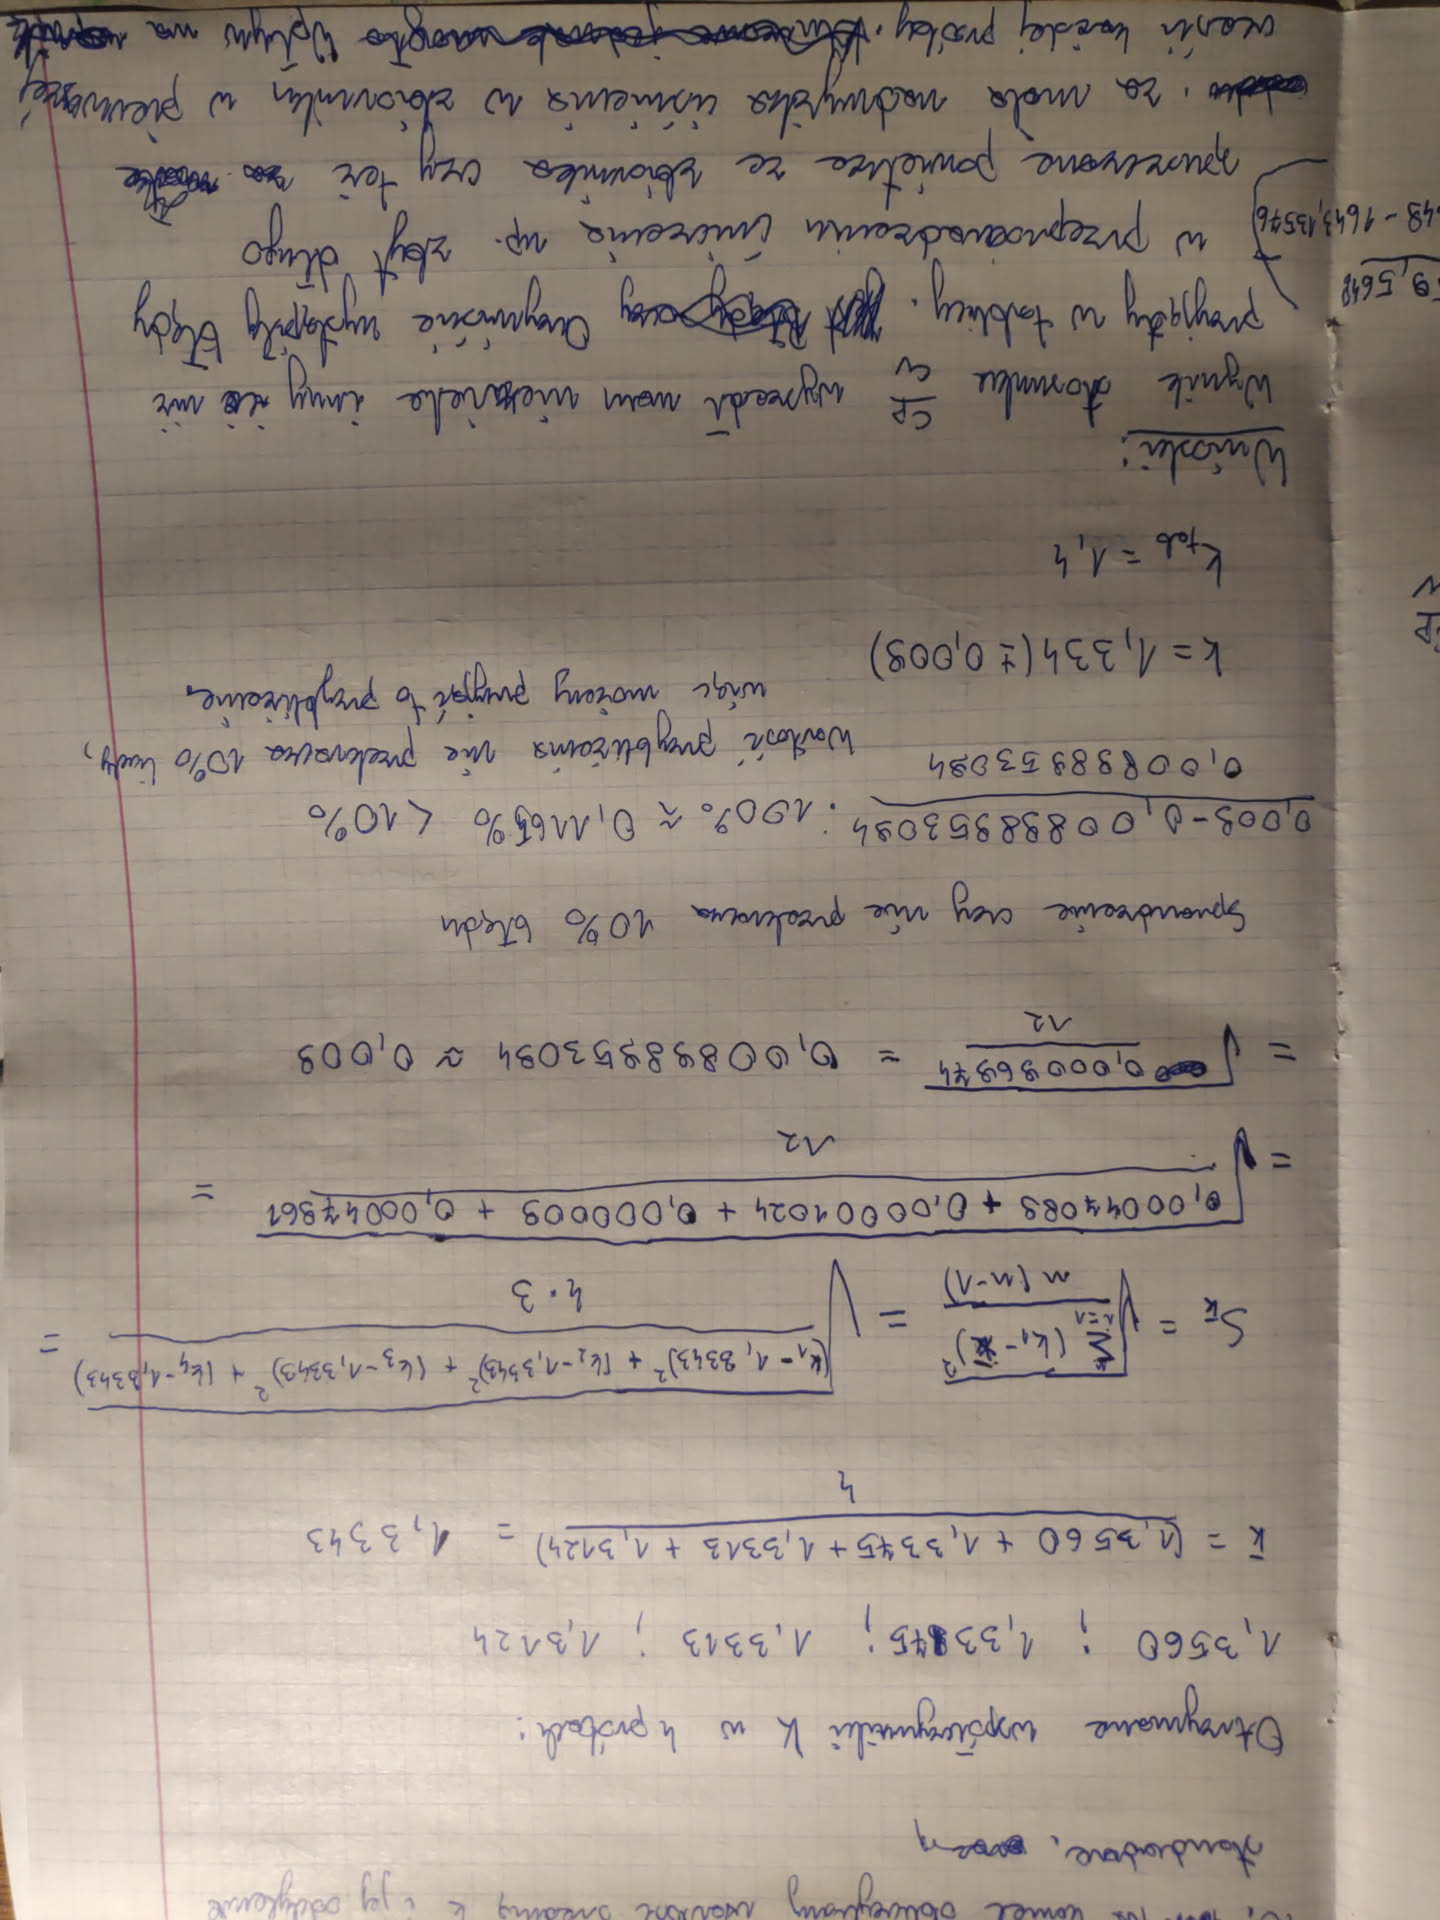 na koniec obliczyliśmy wartość średnią k i jej odchylenie
standardowe,
Otrzymane współczynniki K w 4 próbach:
1,3560 ; 1,3375 ; 1,3313 ; 1,3124
k̄ = (1,3560 + 1,3375 + 1,3313 + 1,3124) / 4 = 1,3343
S_k̄ = √(Σ_{i=1} (k₁ - k̄)² / n(n-1)) = √((k₁-1,3343)² + (k₂-1,3343)² + (k₃-1,3343)² + (k₄-1,3343) / 4·3) =
= √(0,00047089 + 0,00001024 + 0,000009 + 0,00047961 / 12) =
= √(0,00096974 / 12) = 0,00898953094 ≈ 0,009
Sprawdzenie czy nie przekracza 10% błędu
(0,009 - 0,00898953094) / 0,00898953094 · 100% ≈ 0,1165% < 10%
Wartość przybliżenia nie przekracza 10%
więc możemy przyjąć to przybliżenie.
k = 1,334 (± 0,009)
k tab = 1,4
Wnioski:
Wynik stosunku cp/cv wyszedł nam nieznacznie inny niż
przyjęty w tablicy. Oczywiście wystąpiły błędy
w przeprowadzeniu ćwiczenia np. zbyt długo
spuszczone powietrze ze zbiornika czy też
za mała nadwyżka ciśnienia w zbiorniku w pierwszej
części każdej próby. Wpływ na
9,5648
648 - 1643,13576
cp